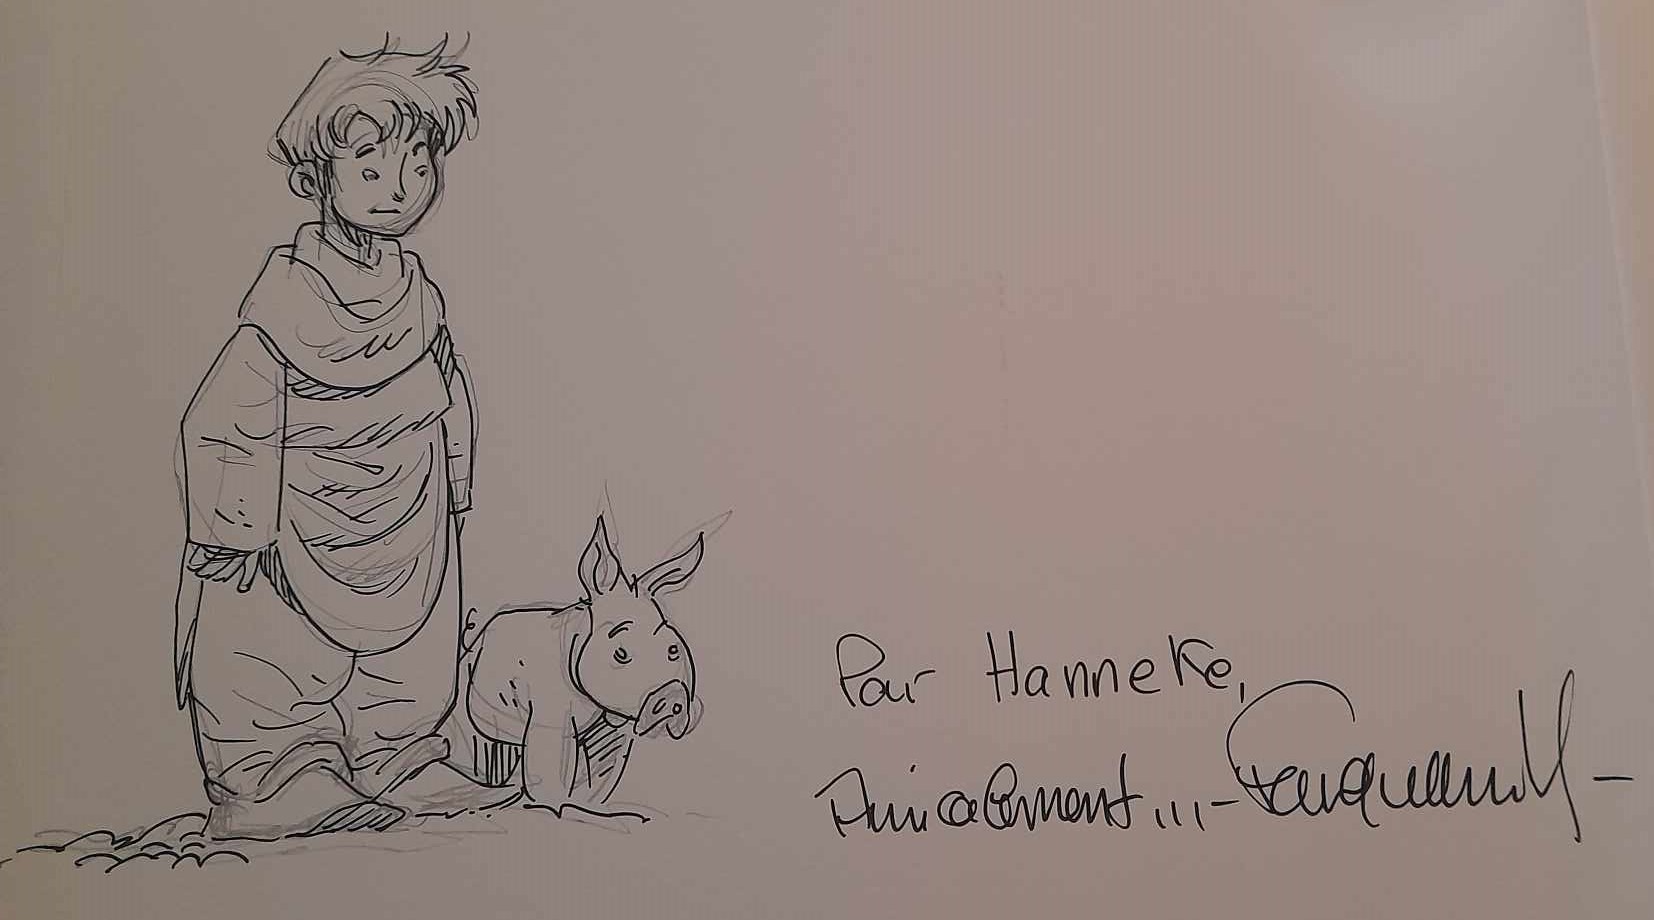 Pour Hanneke,
Amicalement...-